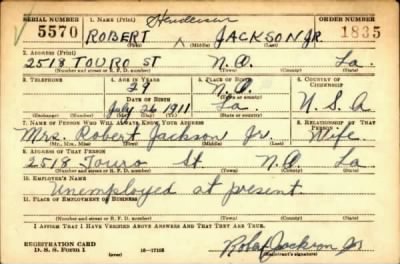 SERIAL NUMBER 1. NAME (Print) Henderson ORDER NUMBER
5570 ROBERT ^ JACKSON JR. 1835
(First) (Middle) (Last)
2. ADDRESS (Print)
2518 TOURO ST N.O. La.
(Number and street or R. F. D. number) (Town) (County) (State)
3. TELEPHONE 4. AGE IN YEARS 5. PLACE OF BIRTH 6. COUNTRY OF CITIZENSHIP
29 N.O.
DATE OF BIRTH (Town or county)
July 26 1911 La U.S.A
(Exchange) (Number) (Mo.) (Day) (Yr.) (State or country)
7. NAME OF PERSON WHO WILL ALWAYS KNOW YOUR ADDRESS 8. RELATIONSHIP OF THAT PERSON
Mrs. Robert Jackson Jr. Wife
(Mr., Mrs., Miss) (First) (Middle) (Last)
9. ADDRESS OF THAT PERSON
2518 Touro St. N.O. La
(Number and street or R. F. D. number) (Town) (County) (State)
10. EMPLOYER'S NAME
Unemployed at present
11. PLACE OF EMPLOYMENT OR BUSINESS
(Number and street or R. F. D. number) (Town) (County) (State)
I AFFIRM THAT I HAVE VERIFIED ABOVE ANSWERS AND THAT THEY ARE TRUE.
REGISTRATION CARD
D. S. S. Form 1 (over) 16-17105 Robert Jackson Jr
(Registrant's signature)